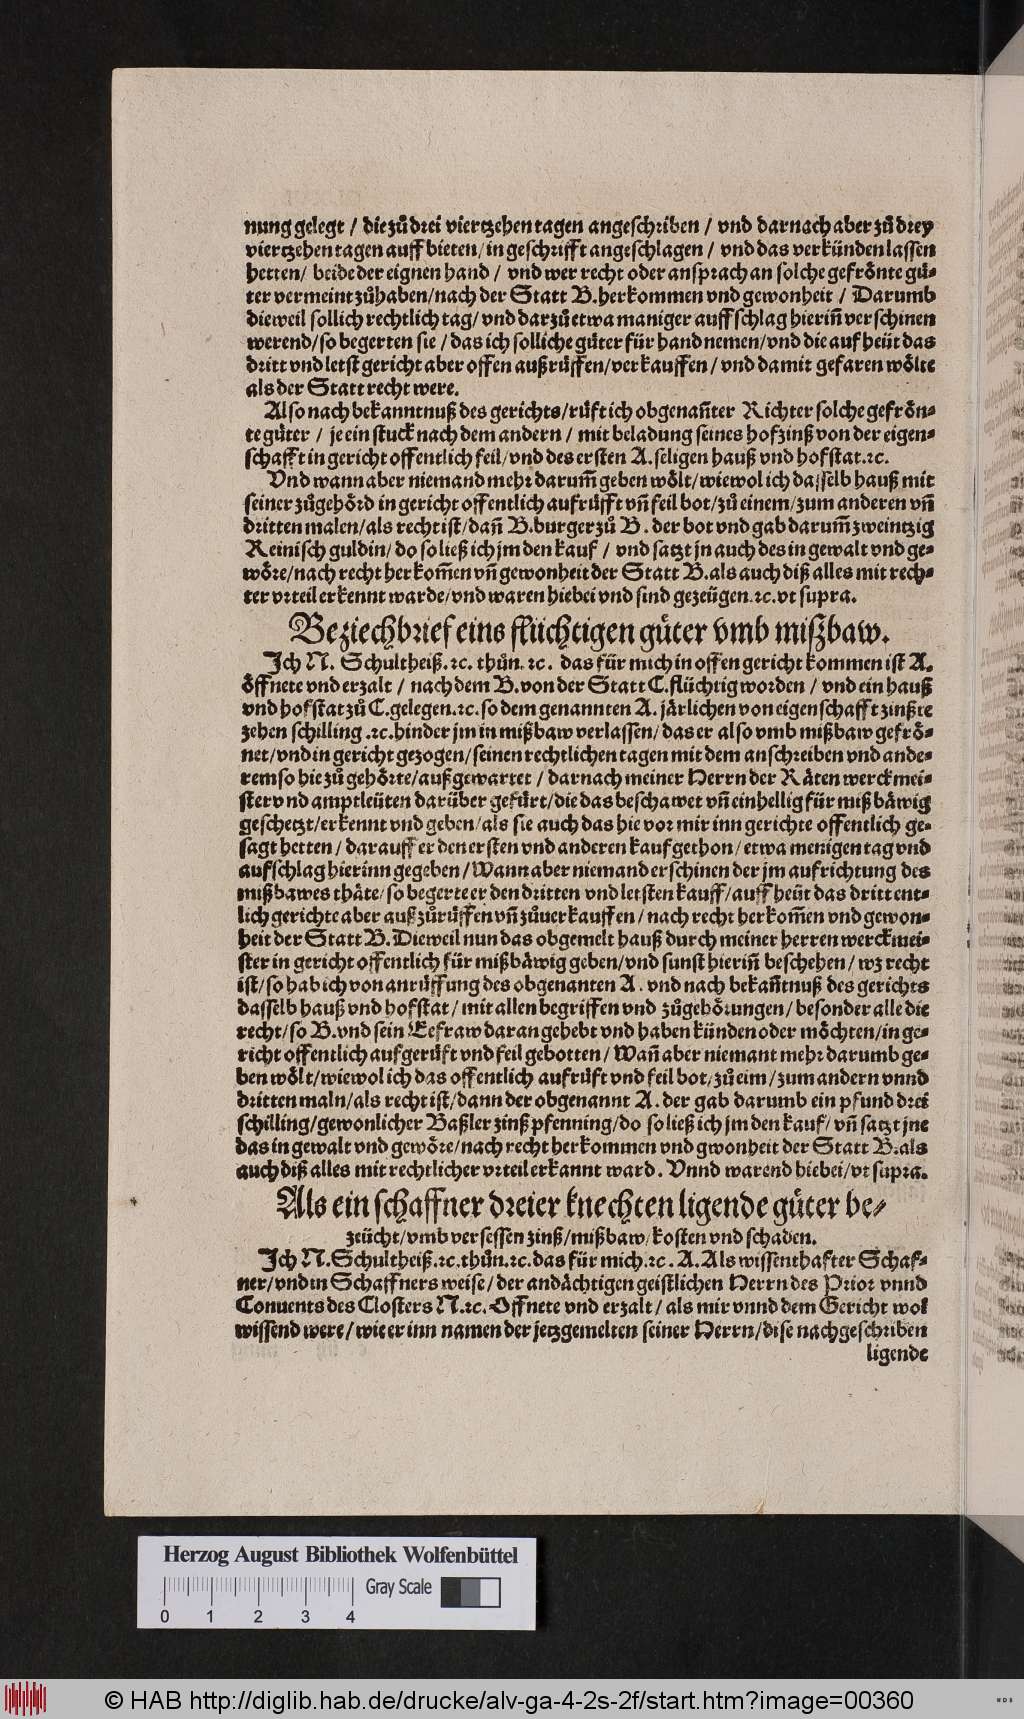 nung gelegt / die zů drei viertzehen tagen angeschriben / vnd darnach aber zů drey
viertzehen tagen auff bieten / in geschrifft angeschlagen / vnd das verkünden lassen
hetten / beide der eignen hand / vnd wer recht oder ansprach an solche gefrönte gü-
ter vermeint zůhaben / nach der Statt B. herkommen vnd gewonheit / Darumb
dieweil sollich rechtlich tag / vnd darzů etwa maniger auffschlag hieriñ verschinen
werend / so begerten sie / das ich solliche güter für hand nemen / vnd die auf heüt das
dritt vnd letst gericht aber offen außrüffen / verkauffen / vnd damit gefaren wölte
als der Statt recht were.
Also nach bekanntnuß des gerichts / rüft ich obgenañter Richter solche gefrön-
te güter / je ein stuck nach dem andern / mit beladung seines hofzinß von der eigen-
schafft in gericht offentlich feil / vnd des ersten A. seligen hauß vnd hofstat. ꝛc.
Vnd wann aber niemand mehr darum̃ geben wölt / wiewol ich dasselb hauß mit
seiner zůgehörd in gericht offentlich aufrüfft vñ feil bot / zů einem / zum anderen vñ
dritten malen / als recht ist / dañ B. burger zů B. der bot vnd gab darum̃ zweintzig
Reinisch guldin / do so ließ ich jm den kauf / vnd satzt jn auch des in gewalt vnd ge-
wöre / nach recht herkom̃en vñ gewonheit der Statt B. als auch diß alles mit rech-
ter vrteil erkennt warde / vnd waren hiebei vnd sind gezeügen. ꝛc. vt supra.
Beziechbrief eins flüchtigen güter vmb mißbaw.
Ich N. Schultheiß. ꝛc. thůn. ꝛc. das für mich in offen gericht kommen ist A.
öffnete vnd erzalt / nach dem B. von der Statt C. flüchtig worden / vnd ein hauß
vnd hofstat zů C. gelegen. ꝛc. so dem genannten A. järlichen von eigenschafft zinßte
zehen schilling. ꝛc. hinder jm in mißbaw verlassen / das er also vmb mißbaw gefrö-
net / vnd in gericht gezogen / seinen rechtlichen tagen mit dem anschreiben vnd ande-
rem so hie zů gehörte / außgewartet / darnach meiner Herrn der Räten werckmei-
ster vnd amptleüten darüber gefürt / die das beschawet vñ einhellig für mißbäwig
geschetzt / erkennt vnd geben / als sie auch das hie vor mir inn gerichte offentlich ge-
sagt hetten / darauff er den ersten vnd anderen kauf gethon / etwa menigen tag vnd
aufschlag hierinn gegeben / Wann aber niemand erschinen der jm aufrichtung des
mißbawes thäte / so begerte er den dritten vnd letsten kauff / auff heüt das dritt ent-
lich gerichte aber auß zůrüffen vñ zůuerkauffen / nach recht herkom̃en vnd gewon-
heit der Statt B. Dieweil nun das obgemelt hauß durch meiner herren werckmei-
ster in gericht offentlich für mißbäwig geben / vnd sunst hieriñ beschehen / wz recht
ist / so hab ich von anrüffung des obgenanten A. vnd nach bekañtnuß des gerichts
dasselb hauß vnd hofstat / mit allen begriffen vnd zůgehörungen / besonder alle die
recht / so B. vnd sein Eefraw daran gehebt vnd haben künden oder möchten / in ge-
richt offentlich aufgerüft vnd feil gebotten / Wañ aber niemant mehr darumb ge-
ben wölt / wiewol ich das offentlich aufrüft vnd feil bot / zů eim / zum andern vnnd
dritten maln / als recht ist / dann der obgenannt A. der gab darumb ein pfund drei
schilling / gewonlicher Baßler zinß pfenning / do so ließ ich jm den kauf / vñ satzt jne
das in gewalt vnd gewöre / nach recht herkommen vnd gwonheit der Statt B. als
auch diß alles mit rechtlicher vrteil erkannt ward. Vnnd warend hiebei / vt supra.
Als ein schaffner dreier knechten ligende güter be-
zeücht / vmb versessen zinß / mißbaw / kosten vnd schaden.
Ich N. Schultheiß. ꝛc. thůn. ꝛc. das für mich. ꝛc. A. Als wissenthafter Schaf-
ner / vnd in Schaffners weise / der andächtigen geistlichen Herrn des Prior vnnd
Conuents des Closters N. ꝛc. Offnete vnd erzalt / als mir vnnd dem Gericht wol
wissend were / wie er inn namen der jetzgemelten seiner Herrn / dise nachgeschriben
ligende
Herzog August Bibliothek Wolfenbüttel
Gray Scale
0 1 2 3 4
© HAB http://diglib.hab.de/drucke/alv-ga-4-2s-2f/start.htm?image=00360